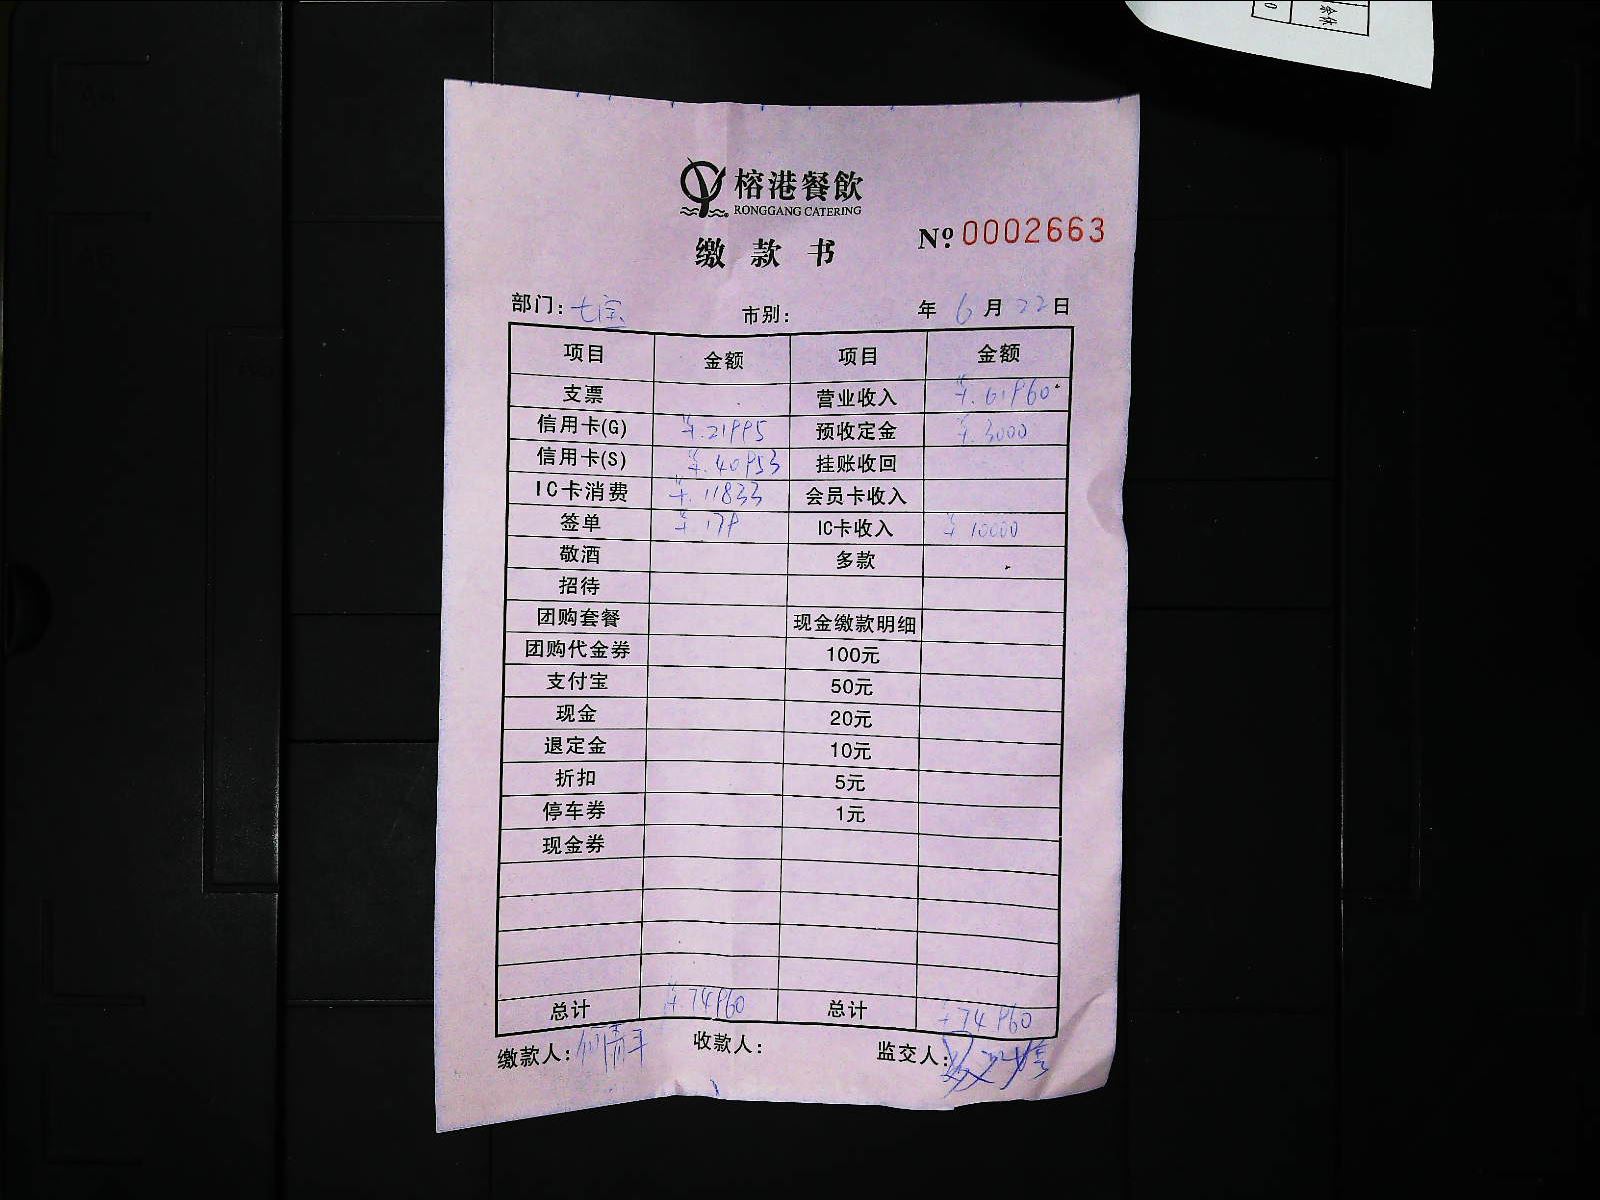 榕港餐飲
RONGGANG CATERING
缴款书
№ 0002663
部门: 七宝 市别: 年 6 月 22 日
项目 金额 项目 金额
支票 营业收入 ¥.61960
信用卡(G) ¥.21995 预收定金 ¥.3000
信用卡(S) ¥.40953 挂账收回
IC卡消费 ¥.11833 会员卡收入
签单 ¥179 IC卡收入 ¥10000
敬酒 多款
招待
团购套餐 现金缴款明细
团购代金券 100元
支付宝 50元
现金 20元
退定金 10元
折扣 5元
停车券 1元
现金券
总计 ¥74960 总计 ¥74960
缴款人: 收款人: 监交人: